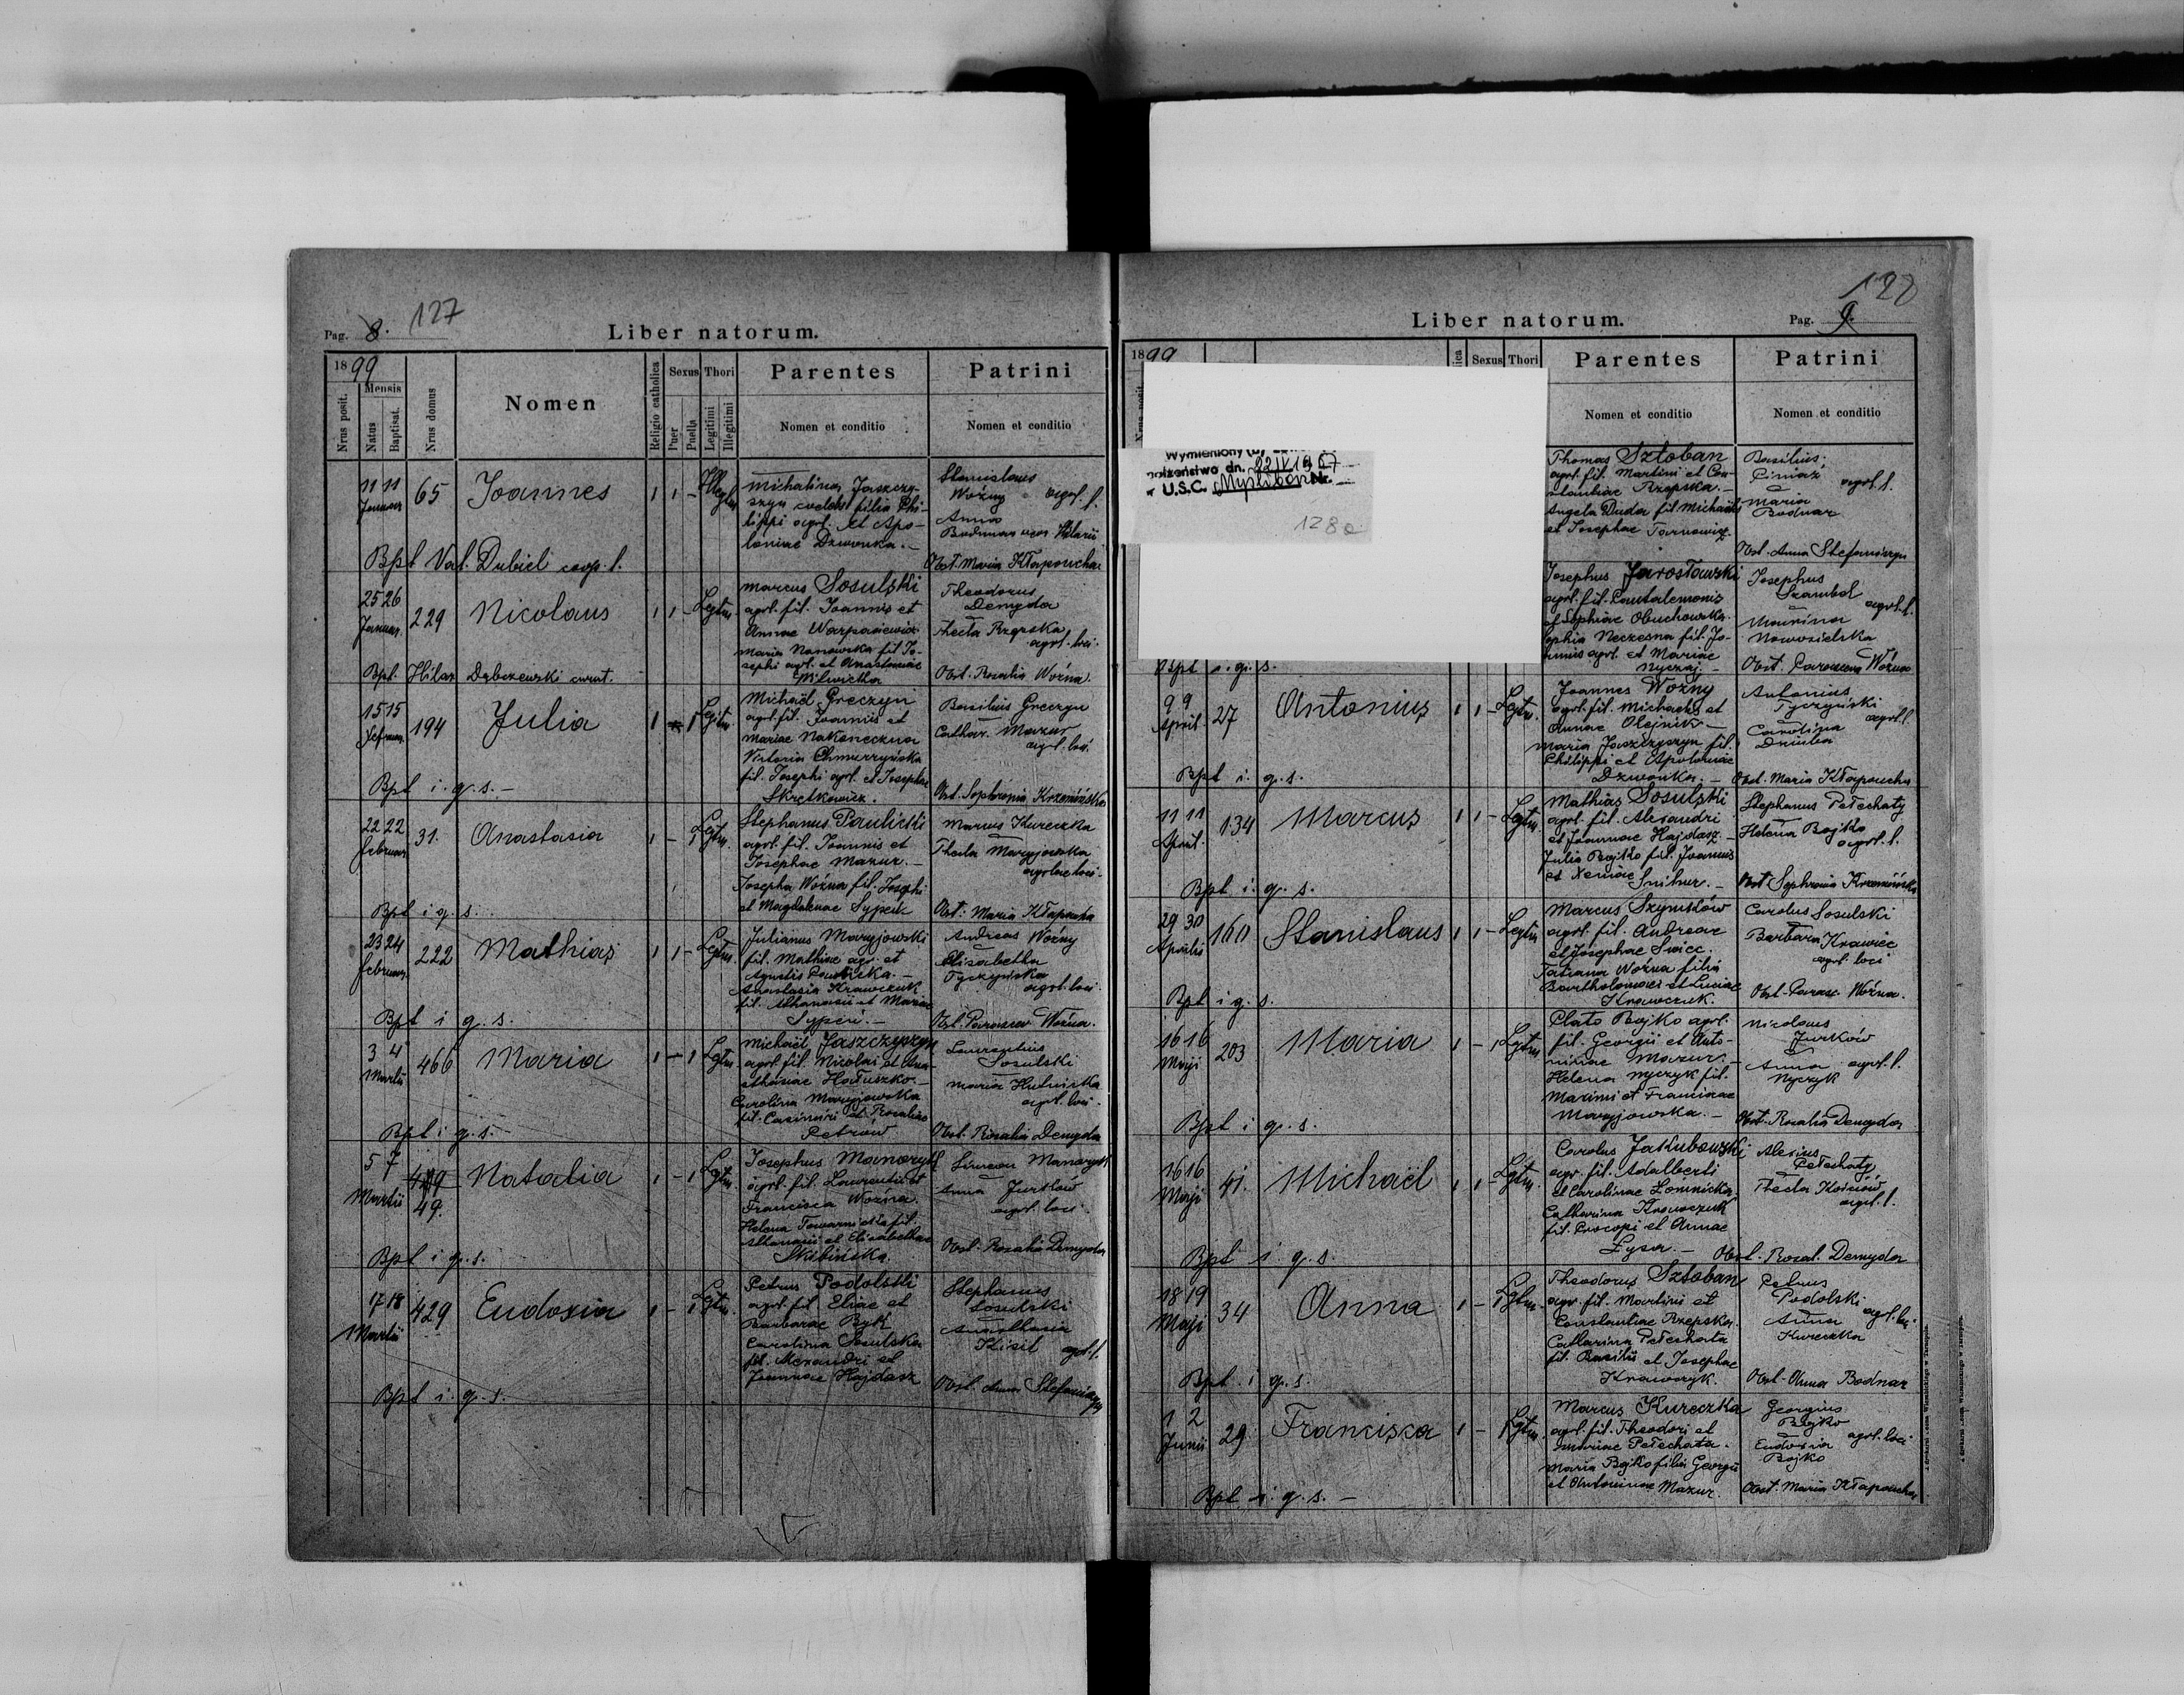 Pag. 8. 127
Liber natorum.
1899
Nrus posit.
Mensis
Natus
Baptisat.
Nrus domus
Nomen
Religio catholica
Sexus
Puer
Puella
Thori
Legitimi
Illegitimi
Parentes
Nomen et conditio
Patrini
Nomen et conditio
11 11
Januar
65
Joannes
1 1 -
Michalina Jaszczy-
szyn filia Phi-
lippi agrl. et Apo-
loniae Dzwonka. -
Stanislaus
Woźny agrl. l.
Anna
Bodnar uxor Hilarii
Obst. Maria Kłapoucha
Bpt Val. Dubiel coop. l.
25 26
Januar.
229
Nicolaus
1 1 - Lgtm.
Marcus Sosulski
agrl. fil. Joannis et
Annae
Maria Nanowska fil. Jo-
sephi agrl. et Anastasiae
Milnicka
Theodorus
Demyda
Thecla Rzepska
agrl. loci.
Obst. Rosalia Woźna.
Bpt. Hilar Dąbczewski curat.
15 15
194
Julia
1 - 1 Lgtm.
Michaël Greczyn
agrl. fil. Joannis et
Mariae Nakoneczna
Victoria Chmurzyńska
fil. Josephi agrl. et Josephae
Skrętkowicz.
Basilius Greczyn
Cathar. Mazur
agrl. loci
Obst. Sophronia Krzemińska
Bpt i. g. s. -
22 22
Februar
31.
Anastasia
1 - 1 Lgtm.
Stephanus Paulicki
agrl. fil. Joannis et
Josephae Mazur. -
Josepha Woźna fil. Josephi
et Magdalenae Sypeik
Marcus Kureczka
Thecla Maryjowska
agrolae loci.
Obst: Maria Kłapoucha
Bpt i g. s.
23 24
Februar
222
Mathias
1 1 - Lgtm.
Julianus Maryjowski
fil. Mathiae agr. et
Agnetis Paulicka. -
Anastasia Krawczuk
fil. Athanasii et Mariae
Andreas Woźny
Elisabetha
Tyczyńska
agrl. loci
Obst. Parascev Woźna.
Bpt i g. s.
3 4
Martii
466
Maria
1 - 1 Lgtm.
Michaël Jaszczyszyn
agrl. fil. Nicolai et Ana-
stasiae Hałuszko. -
Carolina Maryjowska
fil. Casimiri et Rosaliae
Petrów
Laurentius
Sosulski
Maria Kulnicka
agrl. loci.
Obst. Rosalia Demyda
Bpt i g. s.
5 7
Martii
49.
Natalia
1 - 1 Lgtm.
Josephus Manaryk
agrl. fil. Laurentii et
Francisca Woźna.
Helena fil.
Athanasii et Elisabethae
Skibińska.
Simeon Manaryk
Anna Jurków
agrl. loci
Obst. Rosalia Demyda
Bpt i g. s.
17 18
Martii
429
Eudoxia
1 - 1 Lgtm.
Petrus Podolski
agrl. fil. Eliae et
Barbarae Byk
Carolina Sosulska
fil. Alexandri et
Joannae Hajdasz
Stephanus
Sosulski
Anasthasia
Kisil agrl. l.
Obst. Anna Stefaniszyn
Bpt i. g. s.
Liber natorum.
Pag. 9.
1899
Sexus Thori
Parentes
Nomen et conditio
Patrini
Nomen et conditio
dn. 22 IV 1967
w U.S.C. Nr.
128a
Thomas Sztoban
agrl. fil. Martini et Con-
stantiae Rzepska. -
Angela Duda fil. Michaëlis
et Josephae Tarnowicz.
Basilius
agrl. l.
Maria
Bodnar
Obst. Anna Stefaniszyn
Josephus Jarosławski
agrl. fil. Pantalemonis
et Sophiae Obuchowska.
Sophia Neczesna fil. Jo-
annis agrl. et Mariae
Nyczaj. -
Josephus
Szambel
agrl. l.
Marina
Nowosielska
Obst. Parascev Woźna
Bpt i. g. s.
9 9
April
27
Antonius
1 1 - Lgtm.
Joannes Woźny
agrl. fil. Michaelis et
Annae Olejnik -
Maria Jaszczyszyn fil.
Philippi et Apoloniae
Dzwonka. -
Antonius
Tyczyński
agrl. l.
Carolina
Dziuba
Obst. Maria Kłapoucha
Bpt i. g. s.
11 11
April.
134
Marcus
1 1 - Lgtm.
Mathias Sosulski
agrl. fil. Alexandri
et Joannae Hajdasz -
Julia Bojko fil. Joannis
et Xeniae Snihur. -
Stephanus Pełechaty
Helena Bojko
agrl. l.
Obst Sophronia Krzemińska
Bpt i. g. s.
29 30
Aprilis
160
Stanislaus
1 1 - Lgtm
Marcus Szymków
agrl. fil. Andreae
et Josephae
Tatiana Woźna filia
Bartholomaei et Luciae
Krawczuk.
Carolus Sosulski
Barbara Krawiec
agrl. loci
Obst. Parasc. Woźna.
Bpt i g. s.
16 16
Maji
203
Maria
1 - 1 Lgtm
Plato Bojko agrl.
fil. Georgii et Anto-
ninae Mazur. -
Helena Nyczyk fil.
Maximi et Franciscae
Maryjowska. -
Nicolaus
Jurków
Anna agrl. l.
Nyczyk
Obst. Rosalia Demyda
Bpt i g. s.
16 16
Maji
41.
Michaël
1 1 - Lgtm.
Carolus Jakubowski
agr. fil. Adalberti
et Carolinae Łomnicka
Catharina Krawczuk
fil. Procopi et Annae
Łysa. -
Alexius
Pełechaty
Thecla
agrl. l.
Obst. Rosal. Demyda
Bpt i g. s.
18 19
Maji
34
Anna
1 - 1 Lgtm.
Theodorus Sztoban
agr. fil. Martini et
Constantiae Rzepska.
Catharina Pełechata
fil. Basilii et Josephae
Krawczyk.
Petrus
Podolski
agrl. loci.
Anna
Kureczka
Obst. Anna Bodnar
Bpt. i g. s.
1 2
Junii
29
Francisca
1 - 1 Lgtm.
Marcus Kureczka
agrl. fil. Theodori et
Mariae Pełechata.
Maria Bojko filia Georgii
et Antoninae Mazur.
Georgius
Bojko
agrl. loci
Eudoxia
Bojko
Obst. Maria Kłapoucha
Bpt. i. g. s. -